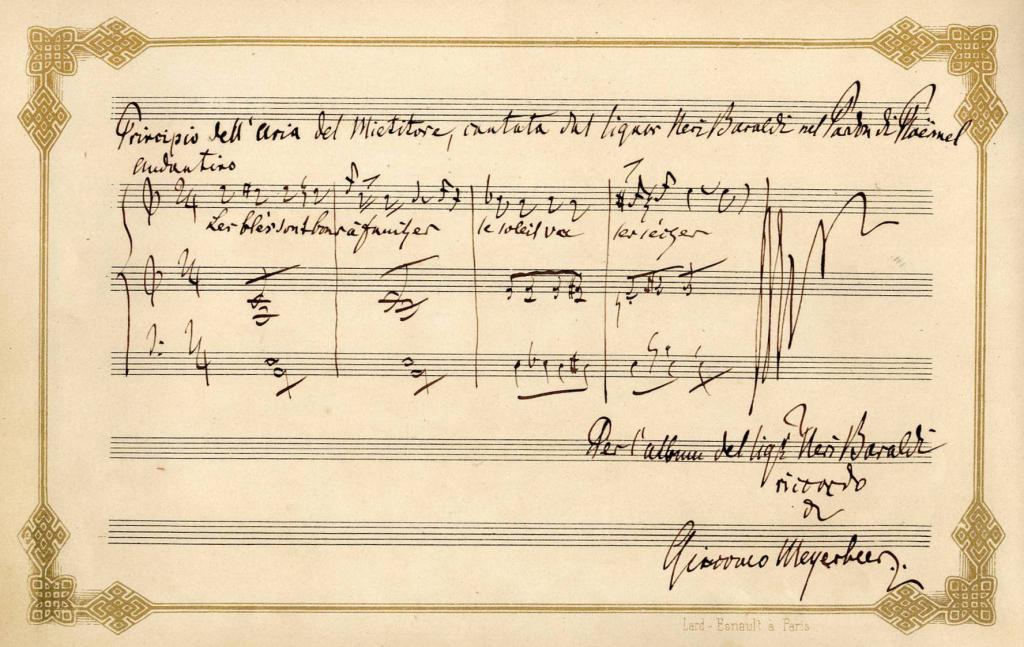 Principio dell'Aria del Mietitore, cantata dal Signor Neri Baraldi nel Pardon di Ploërmel
Andantino
Les blés sont bons à faucher le soleil va les sécher
Per l'album del Sigr Neri Baraldi
ricordo
di
Giacomo Meyerbeer.
Lard-Esnault à Paris